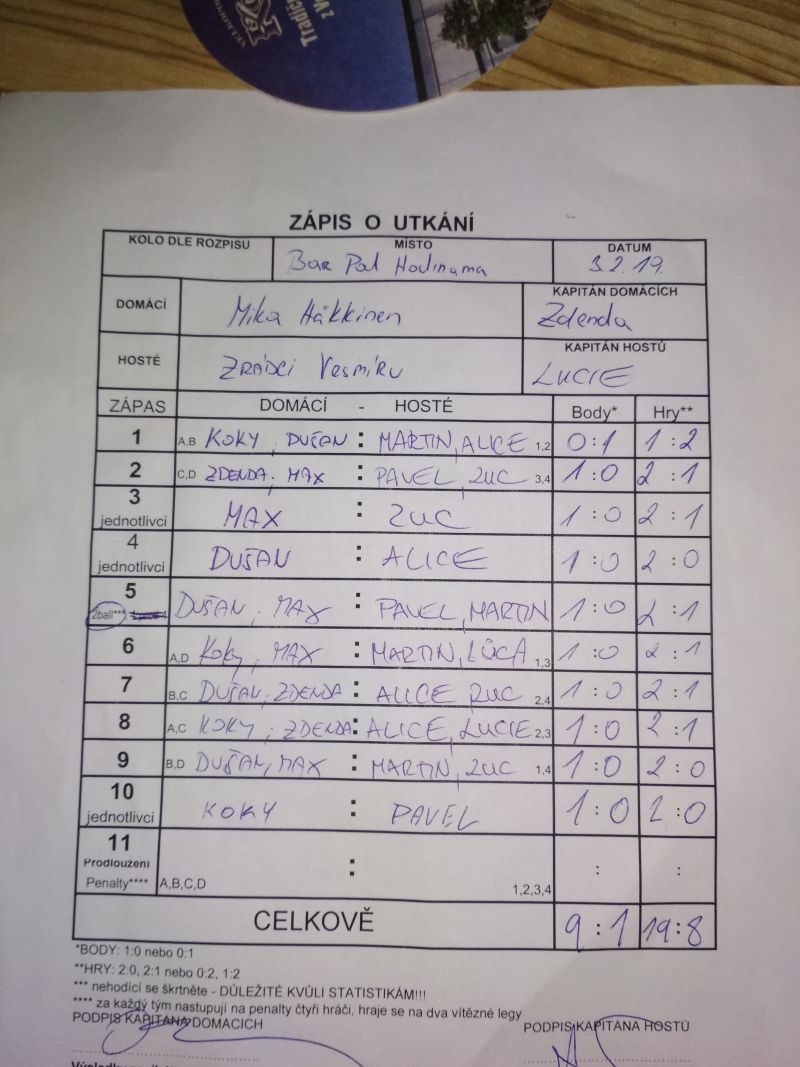 Tradice
z V
ZÁPIS O UTKÁNÍ
KOLO DLE ROZPISU MÍSTO DATUM
Bar Pod Hodinama 3.2.19.
DOMÁCÍ Mika Häkkinen KAPITÁN DOMÁCÍCH Zdenda
HOSTÉ ZRÁDCI Vesmíru KAPITÁN HOSTŮ LUCIE
ZÁPAS DOMÁCÍ - HOSTÉ Body* Hry**
1 A,B KOKY, DUŠAN : MARTIN, ALICE 1,2 0:1 1:2
2 C,D ZDENDA, MAX : PAVEL, ZUC 3,4 1:0 2:1
3 jednotlivci MAX : ZUC 1:0 2:1
4 jednotlivci DUŠAN : ALICE 1:0 2:0
5 2ball*** DUŠAN, MAX : PAVEL, MARTIN 1:0 2:1
6 A,D Koky, MAX : MARTIN, LÚCA 1,3 1:0 2:1
7 B,C DUŠAN, ZDENDA : ALICE ZUC 2,4 1:0 2:1
8 A,C KOKY, ZDENDA : ALICE, LUCIE 2,3 1:0 2:1
9 B,D DUŠAN, MAX : MARTIN, ZUC 1,4 1:0 2:0
10 jednotlivci KOKY : PAVEL 1:0 2:0
11 Prodloužení
Penalty**** A,B,C,D : 1,2,3,4 : :
CELKOVĚ 9:1 19:8
*BODY: 1:0 nebo 0:1
**HRY: 2:0, 2:1 nebo 0:2, 1:2
*** nehodící se škrtněte - DŮLEŽITÉ KVŮLI STATISTIKÁM!!!
**** za každý tým nastupují na penalty čtyři hráči, hraje se na dva vítězné legy
PODPIS KAPITÁNA DOMÁCÍCH PODPIS KAPITÁNA HOSTŮ